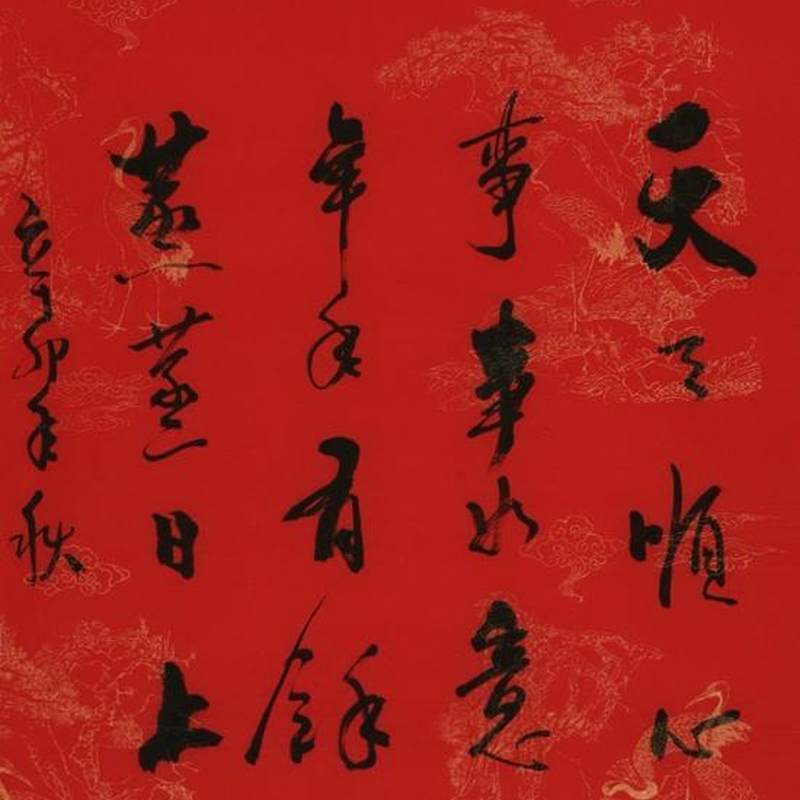 天天順心
事事如意
年年有餘
蒸蒸日上
辛卯年秋